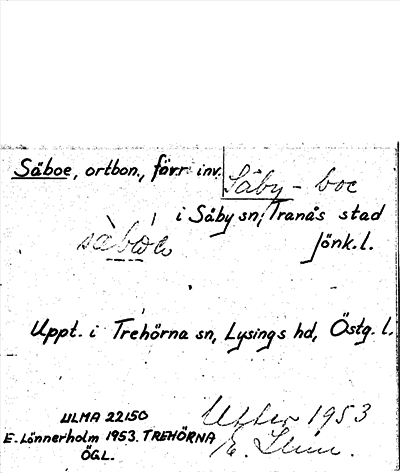 Säboe, ortbon., förr inv. Säby-boe
i Säby sn, Tranås stad
Jönk.l.
Uppt. i Trehörna sn, Lysings hd, Östg. l.
ULMA 22150
E. Lönnerholm 1953. TREHÖRNA
ÖGL.
Utter 1953